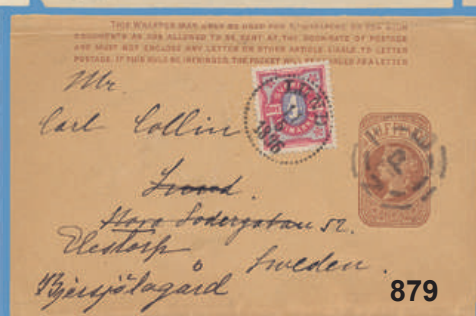 THIS WRAPPER MAY ONLY BE USED FOR NEWSPAPERS OR FOR SUCH
DOCUMENTS AS ARE ALLOWED TO BE SENT AT THE BOOK-RATE OF POSTAGE
AND MUST NOT ENCLOSE ANY LETTER OR OTHER ARTICLE LIABLE TO LETTER
POSTAGE. IF THIS RULE BE INFRINGED, THE PACKET WILL BE CHARGED AS A LETTER
Mr.
Carl Collin
Lund.
Stora Södergatan 52.
Elestorp
Sweden.
Bjersjölagård
1896
879